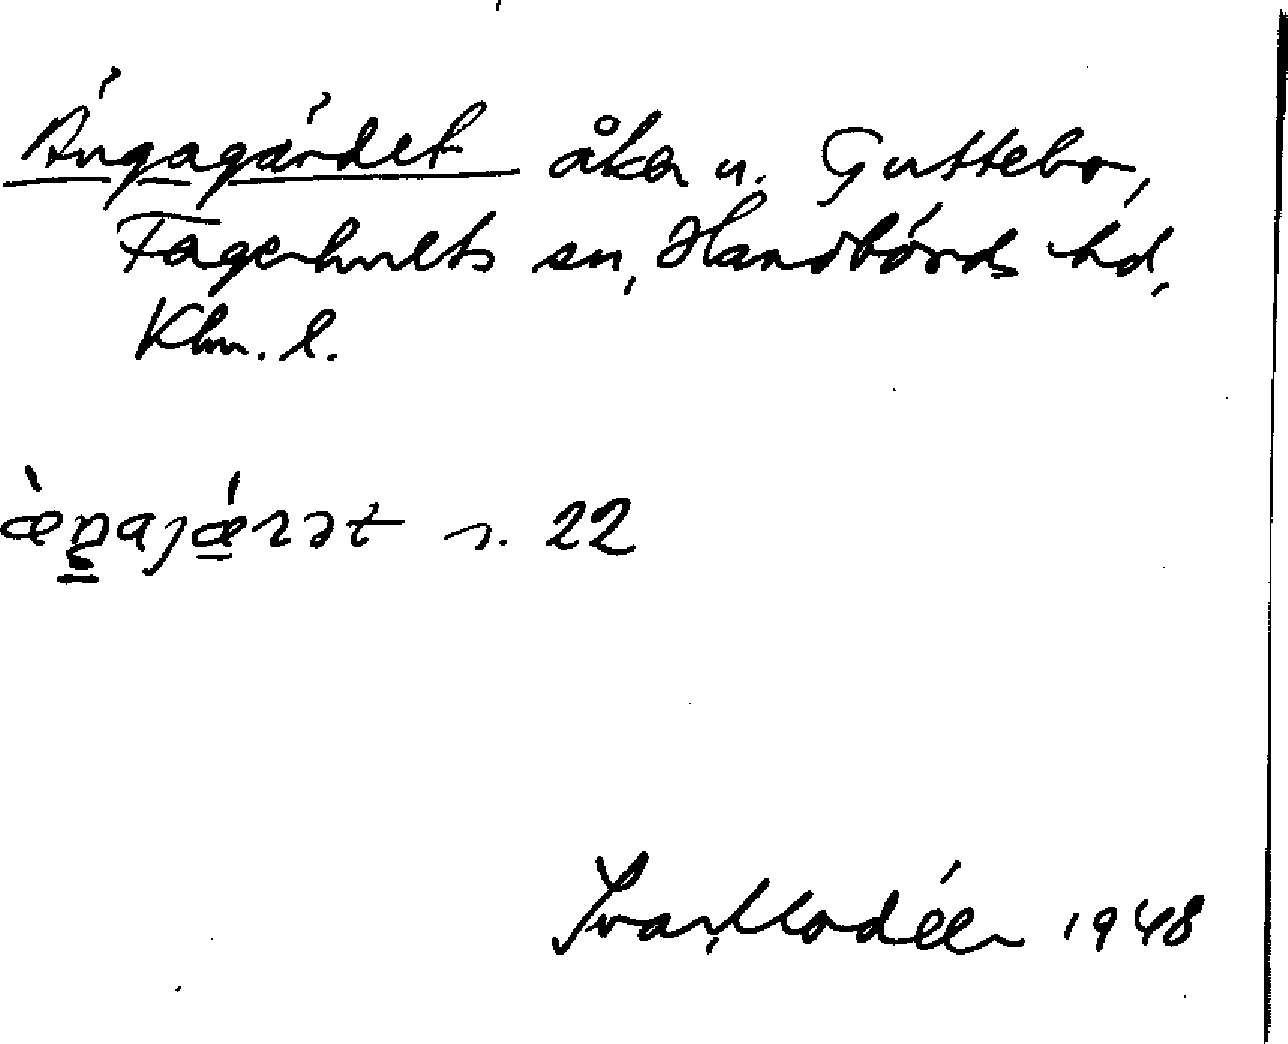 Ängagärdet åker u. Guttebo,
Fagerhults sn, Handbörds hd,
Klm. l.
æ̀ŋajǽrət s. 22
Ivar Modéer 1948